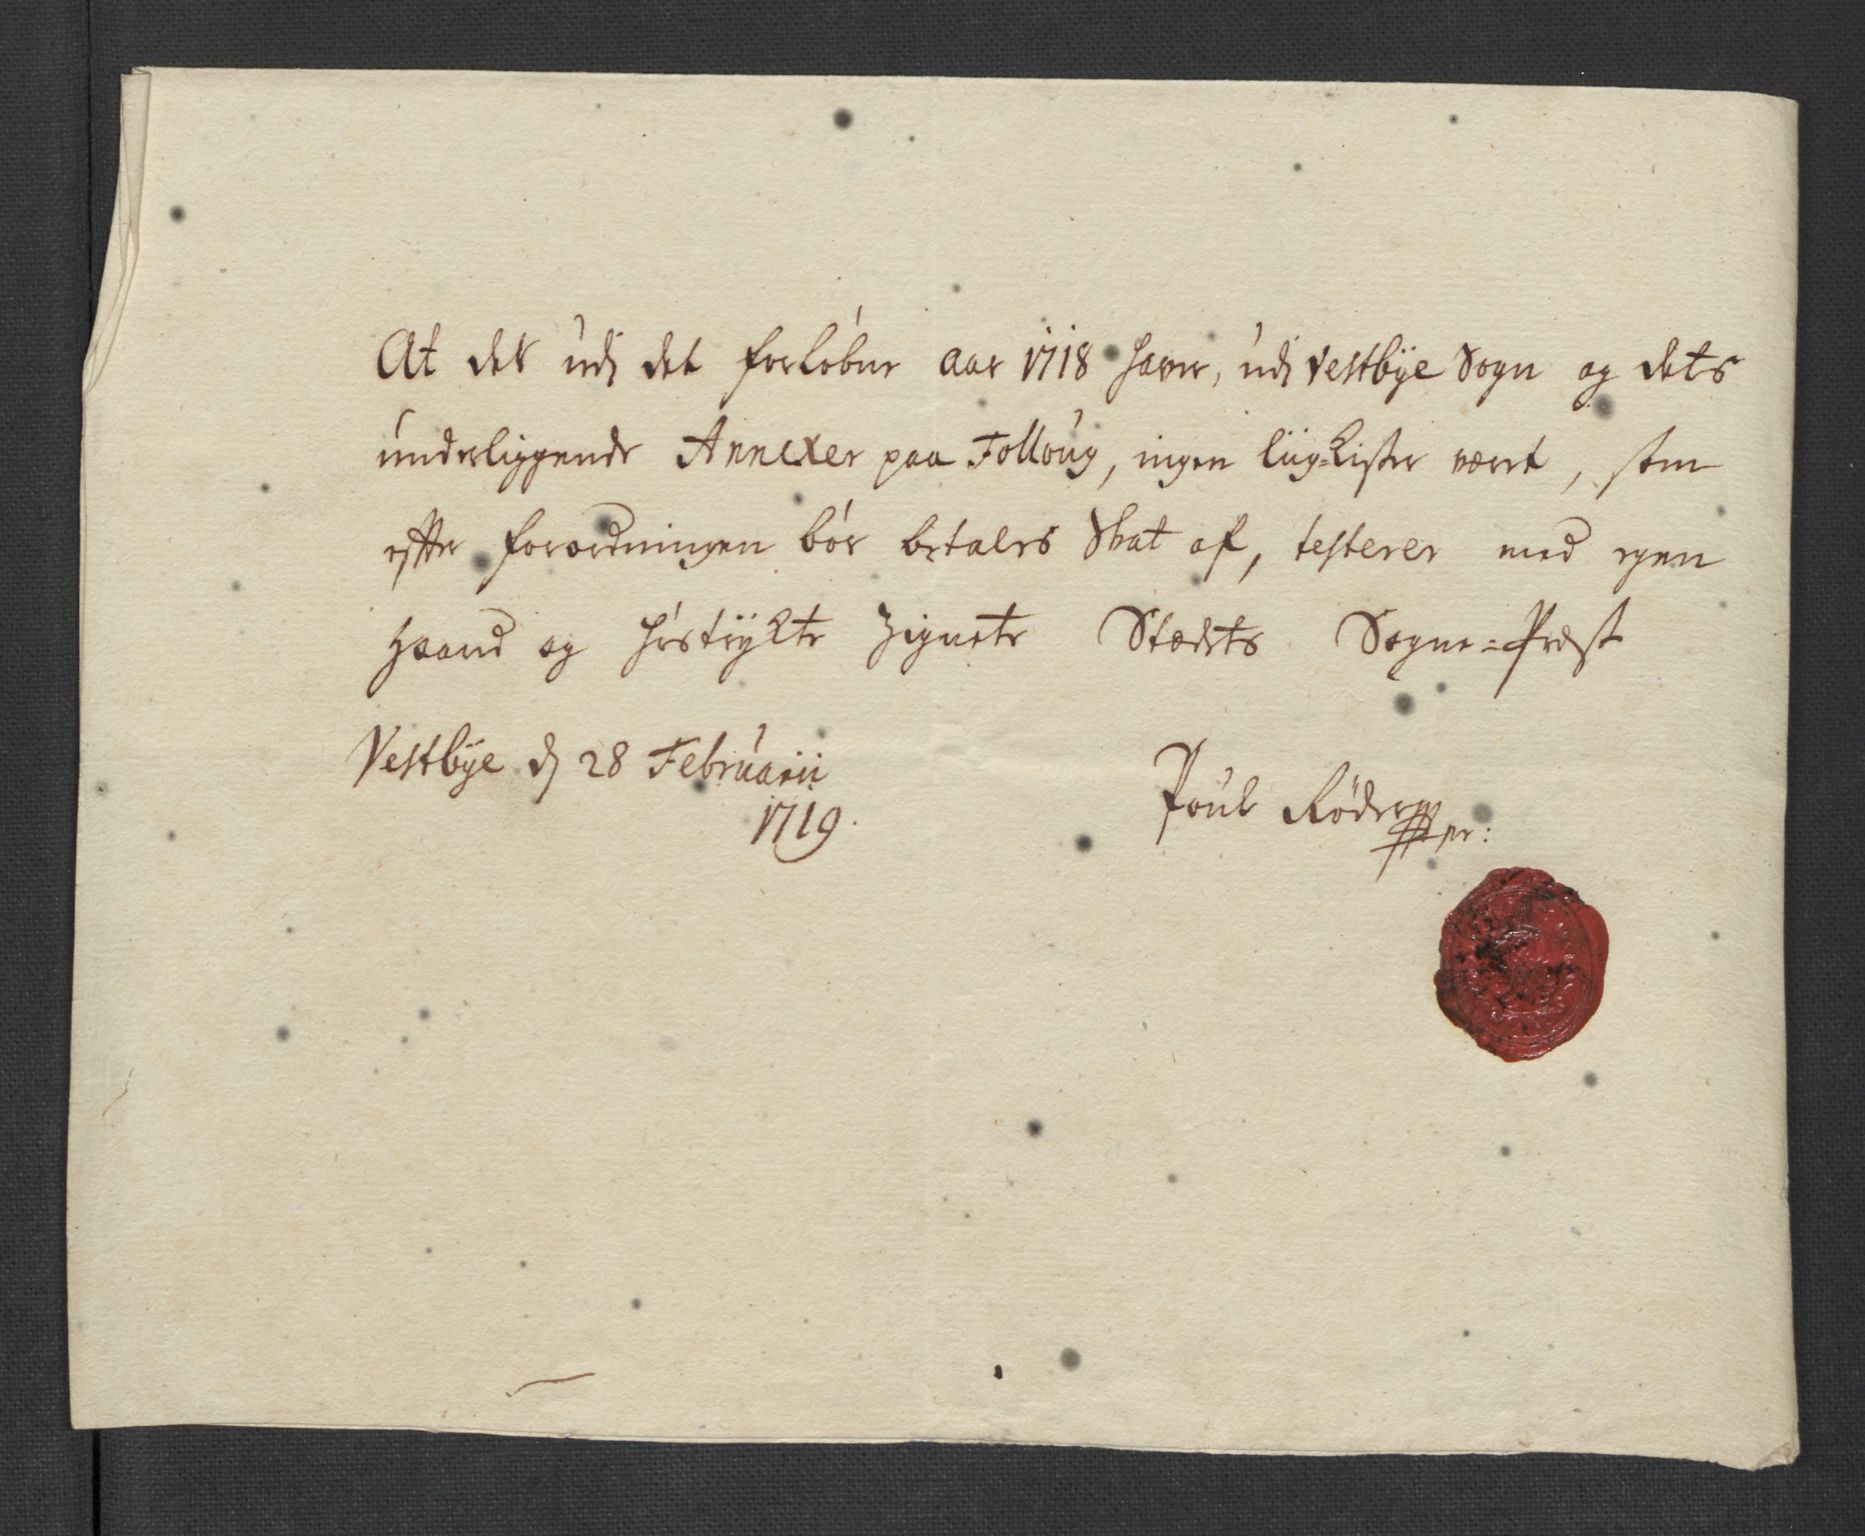 At der udj det forløbne aar 1718 hawer, udj Vestbÿe Sogn og dets
underliggende Annexer paa Folloug, ingen liig-Kister været, som
efter forordningen bór betales Skat af, testerer med egen
Haand og hostrÿkte Zignete Stædets Sogne=Præst
Vestbÿe dj 28 Februarii
1719.
Poul Röder